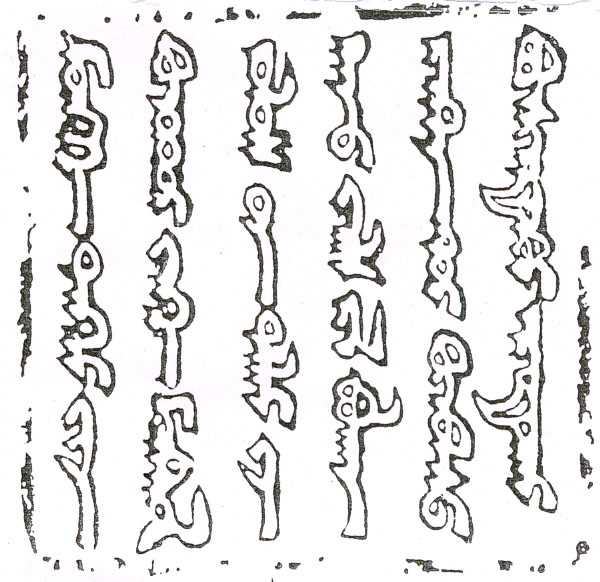 ᠮᠥᠩᠬᠡ ᠲᠩᠷᠢ ᠶᠢᠨ
ᠬᠦᠴᠦᠨᠳᠦᠷ ᠶᠡᠬᠡ ᠮᠣᠩᠭᠣᠯ
ᠤᠯᠤᠰ ᠤᠨ ᠳᠠᠯᠠᠢ ᠢᠨ
ᠬᠠᠨᠤ ᠵᠷᠯᠭ ᠢᠯ ᠪᠤᠯᠭᠠ
ᠢᠷᠭᠡᠨ ᠳᠦᠷ ᠬᠦᠷᠪᠡᠰᠦ
ᠪᠦᠰᠢᠷᠡᠲᠦᠭᠦᠢ ᠠᠶᠤᠲᠤᠭᠠᠢ